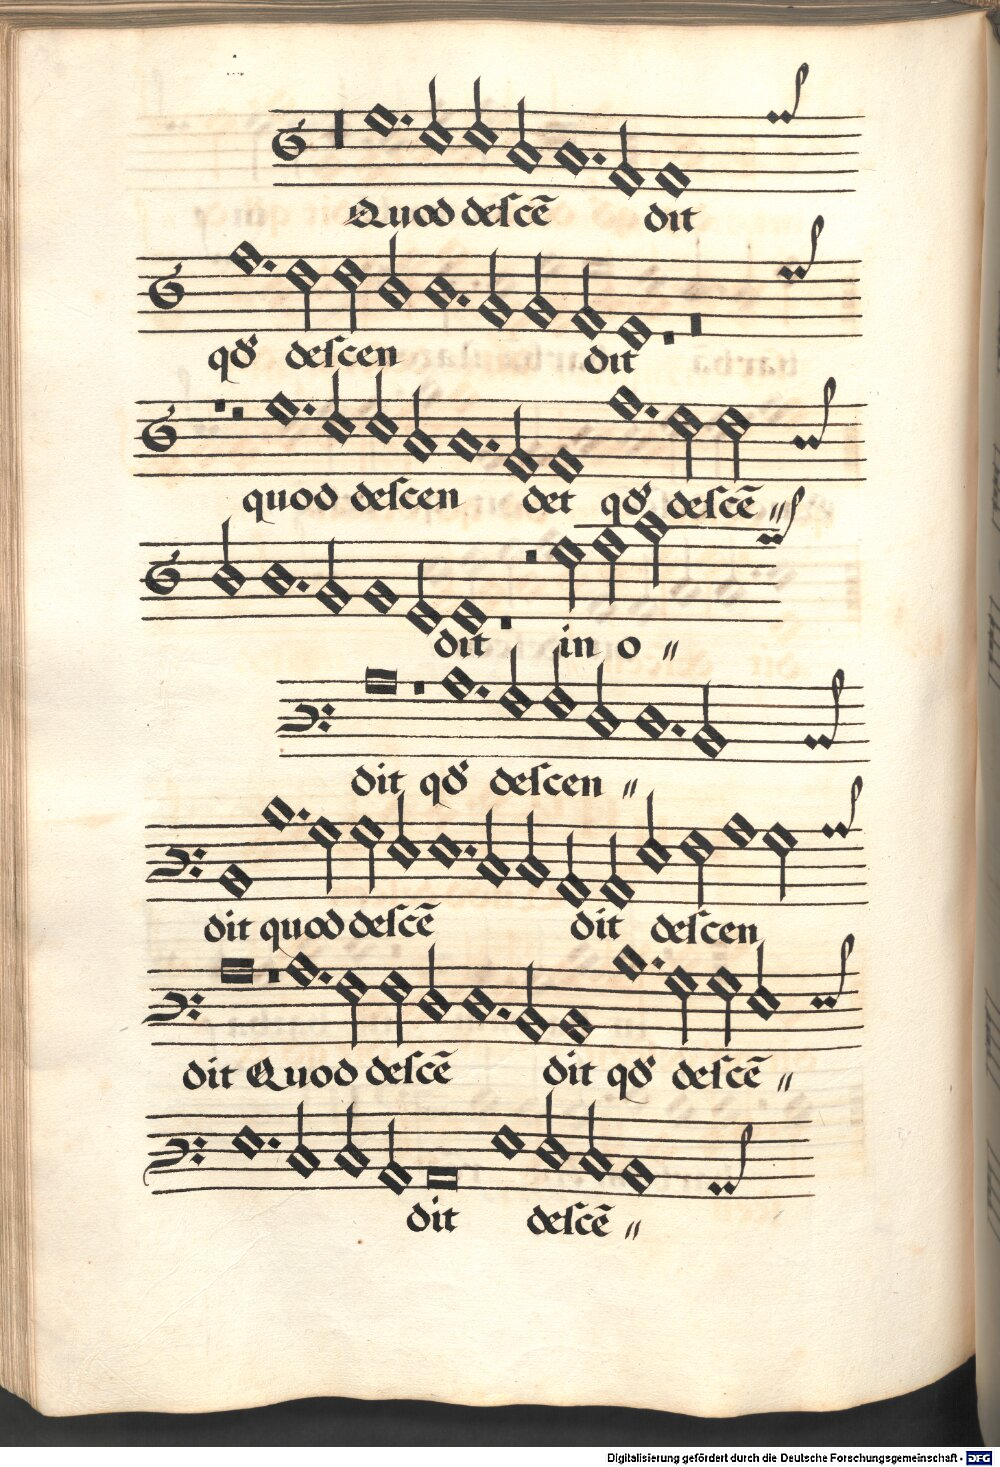 Quod descē dit
qđ descen dit
quod descen det qđ descē〃
dit in o〃
dit qđ descen〃
dit quod descē dit descen
dit Quod descē dit qđ descē〃
dit descē〃
Digitalisierung gefördert durch die Deutsche Forschungsgemeinschaft - DFG